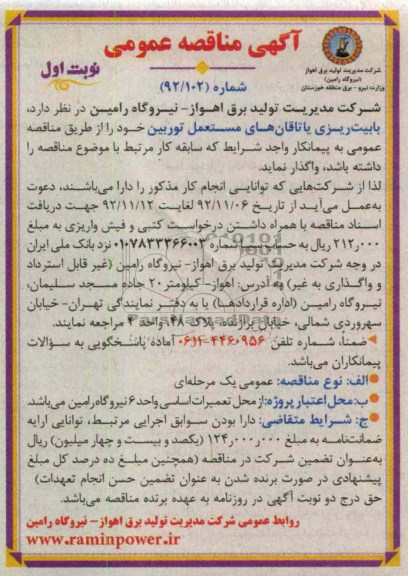 آگهی مناقصه عمومی
نوبت اول
شرکت مدیریت تولید برق اهواز
(نیروگاه رامین)
وزارت نیرو - برق منطقه خوزستان
شماره (۹۲/۱۰۲)
شرکت مدیریت تولید برق اهواز- نیروگاه رامین در نظر دارد،
بابیت‌ریزی یاتاقان‌های مستعمل توربین خود را از طریق مناقصه
عمومی به پیمانکار واجد شرایط که سابقه کار مرتبط با موضوع مناقصه را
داشته باشد، واگذار نماید.
لذا از شرکت‌هایی که توانایی انجام کار مذکور را دارا می‌باشند، دعوت
به‌عمل می‌آید از تاریخ ۹۲/۱۱/۰۶ لغایت ۹۲/۱۱/۱۲ جهت دریافت
اسناد مناقصه با همراه داشتن درخواست کتبی و فیش واریزی به مبلغ
۲۱۲٫۰۰۰ ریال به حساب شماره ۰۱۰۷۸۳۳۳۶۶۰۰۳ نزد بانک ملی ایران
در وجه شرکت مدیریت تولید برق اهواز- نیروگاه رامین (غیر قابل استرداد
و واگذاری به غیر) به آدرس: اهواز- کیلومتر ۲۰ جاده مسجد سلیمان،
نیروگاه رامین (اداره قراردادها) یا به دفتر نمایندگی تهران- خیابان
سهروردی شمالی، خیابان پلاک ۴۸، واحد ۴ مراجعه نمایند.
ضمنا، شماره تلفن ۴۴۶۰۹۵۶-۰۶۱۱ آماده پاسخگویی به سؤالات
پیمانکاران می‌باشد.
الف: نوع مناقصه: عمومی یک مرحله‌ای
ب: محل اعتبار پروژه: از محل تعمیرات اساسی واحد ۶ نیروگاه رامین می‌باشد.
ج: شرایط متقاضی: دارا بودن سوابق اجرایی مرتبط، توانایی ارایه
ضمانت‌نامه به مبلغ ۱۲۴٫۰۰۰٫۰۰۰ (یکصد و بیست و چهار میلیون) ریال
به‌عنوان تضمین شرکت در مناقصه (همچنین مبلغ ده درصد کل مبلغ
پیشنهادی در صورت برنده شدن به عنوان تضمین حسن انجام تعهدات)
حق درج دو نوبت آگهی در روزنامه به عهده برنده مناقصه می‌باشد.
روابط عمومی شرکت مدیریت تولید برق اهواز- نیروگاه رامین
www.raminpower.ir